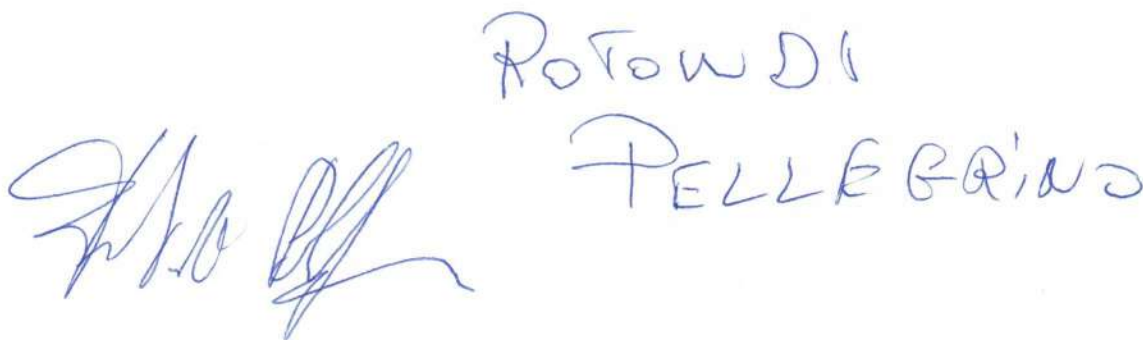 ROTONDI
PELLEGRINO